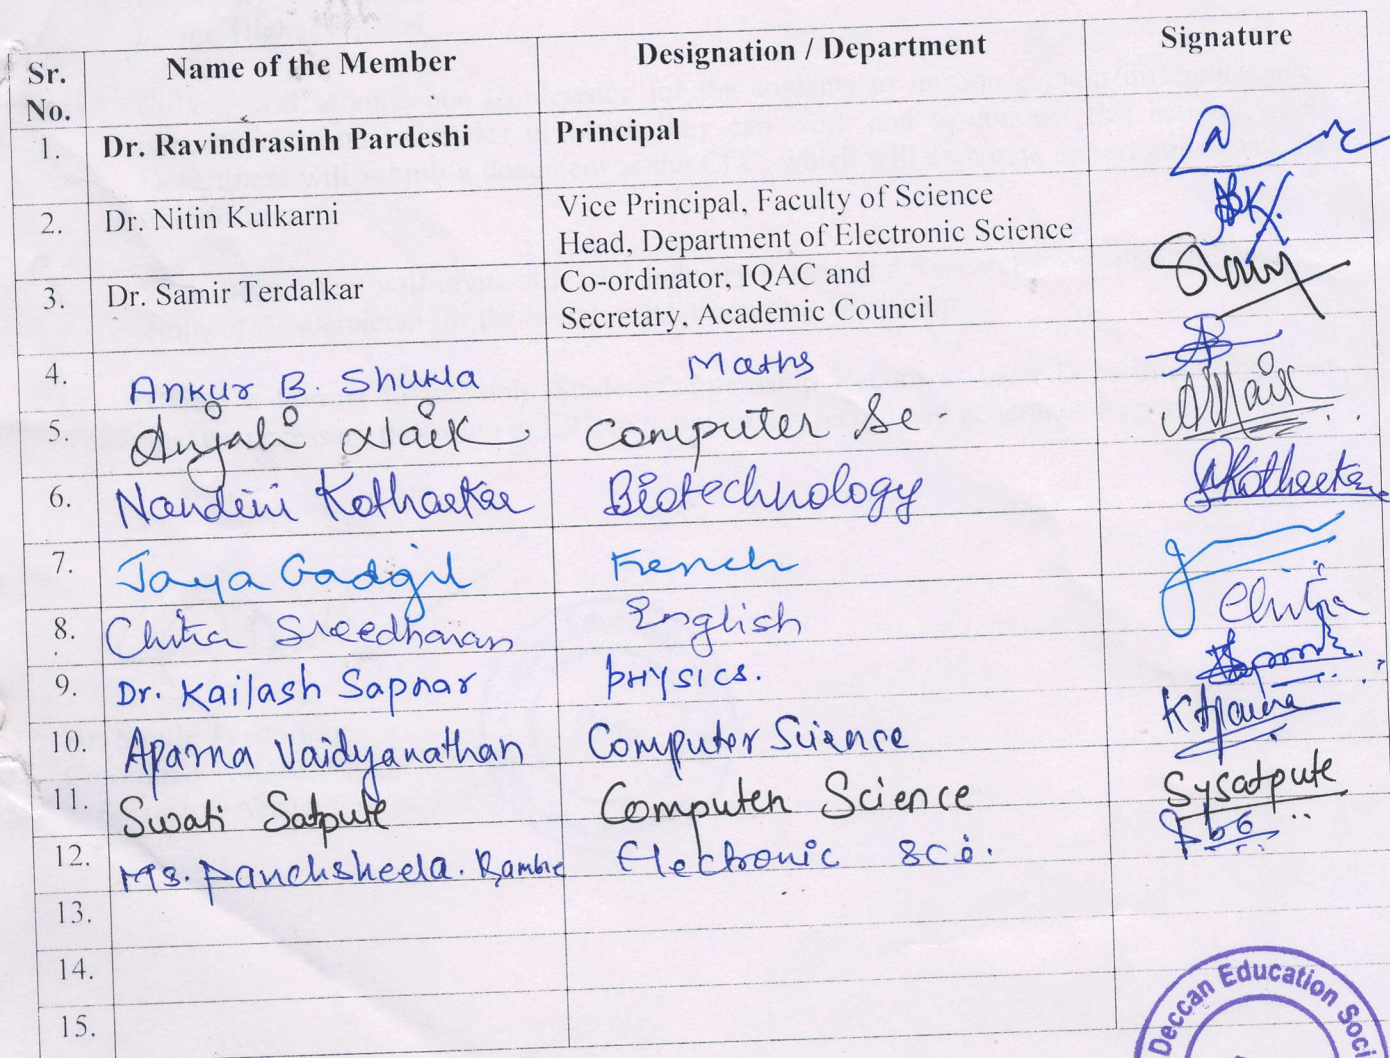 Sr. No. Name of the Member Designation / Department Signature
1. Dr. Ravindrasinh Pardeshi Principal
2. Dr. Nitin Kulkarni Vice Principal, Faculty of Science
Head, Department of Electronic Science
3. Dr. Samir Terdalkar Co-ordinator, IQAC and
Secretary, Academic Council
4. Ankur B. Shukla Maths
5. Anjali Naik Computer Sc
6. Nandini Kotharkar Biotechnology
7. Jaya Gadgil French
8. Chitra Sreedharan English Chitra
9. Dr. Kailash Sapnar PHYSICS.
10. Aparna Vaidyanathan Computer Science
11. Swati Satpute Computer Science Sysatpute
12. Ms. Panchsheela. Electronic Sci.
13.
14.
15.
Deccan Education Soci